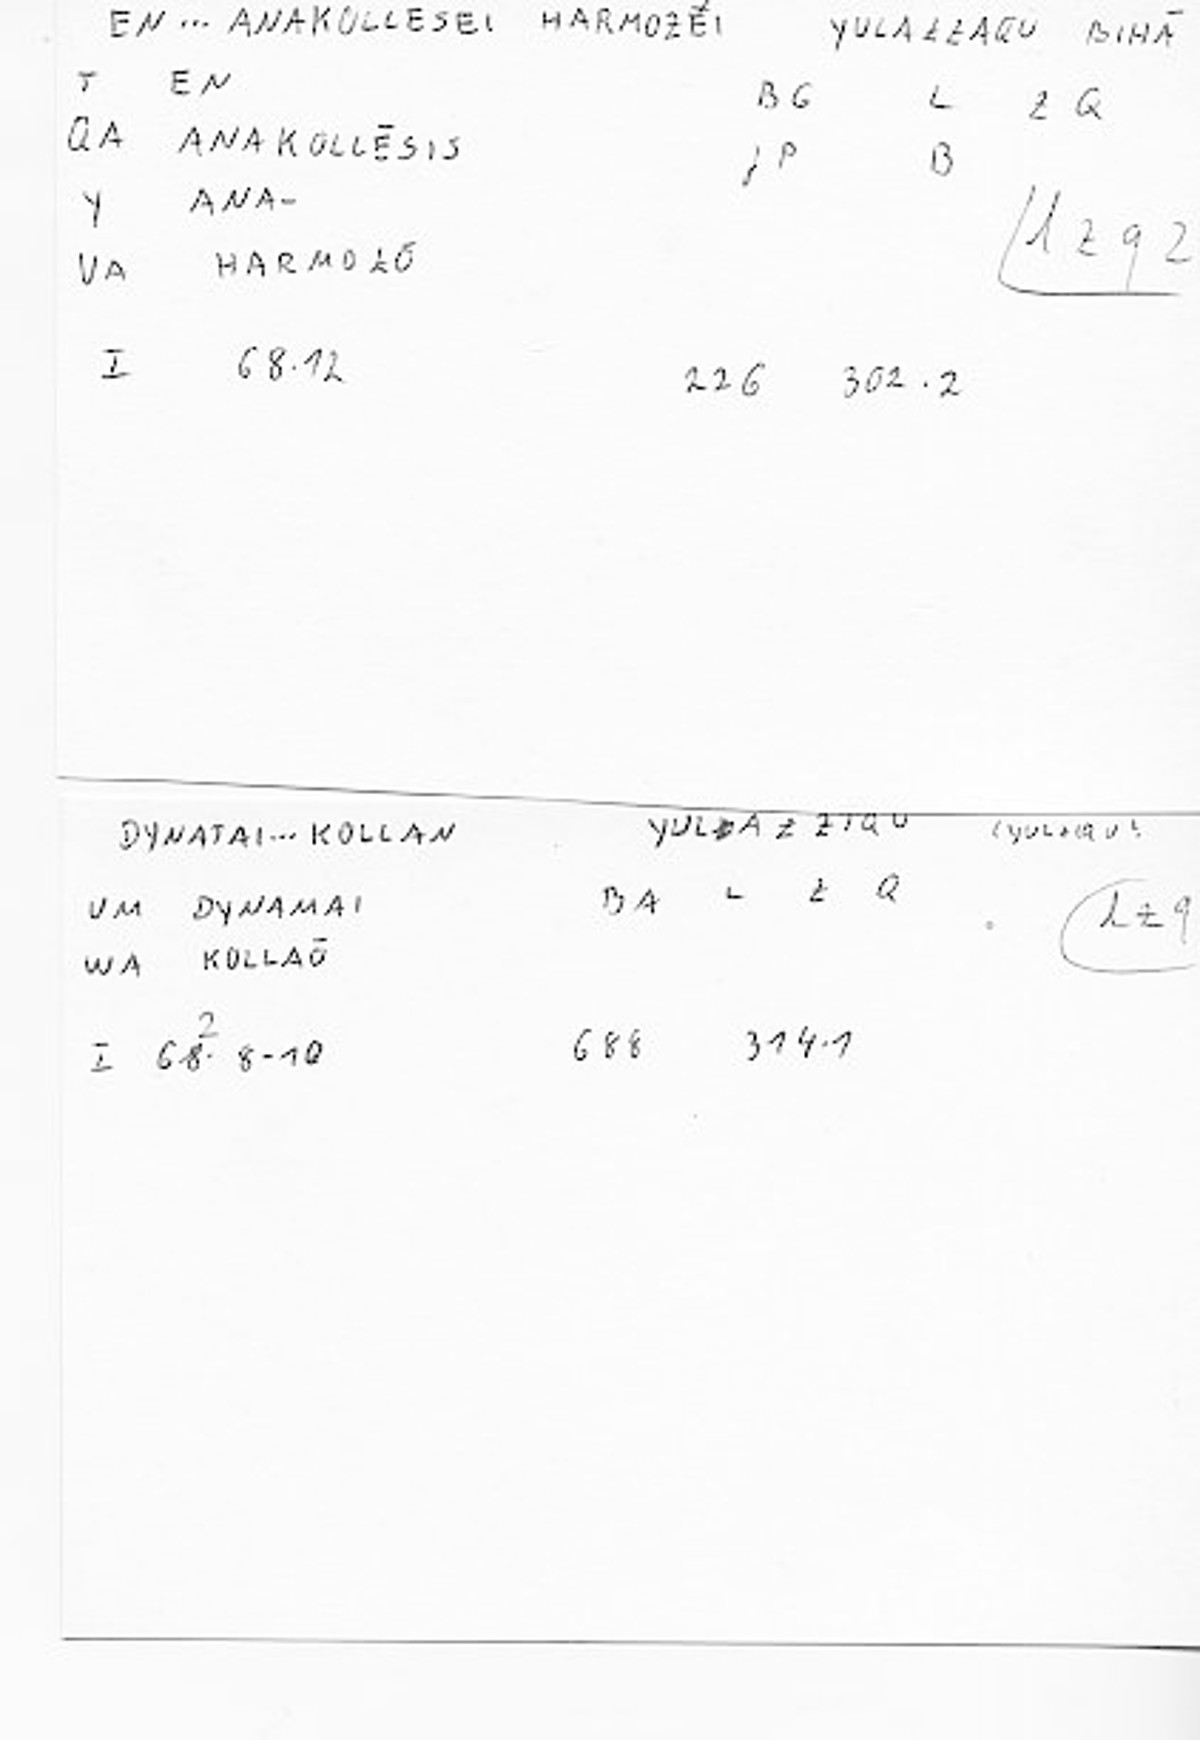 EN ... ANAKOLLESEI HARMOZĒI YULAZZAQU BIHĀ
T EN BG L Z Q
QA ANAKOLLĒSIS JP B
Y ANA- lzq2
VA HARMOZŌ
I 68.12 226 302.2
DYNATAI... KOLLAN YULZAZZIQU
VM DYNAMAI BA L Z Q lzq
WA KOLLAŌ
2
I 68. 8-10 688 314.1